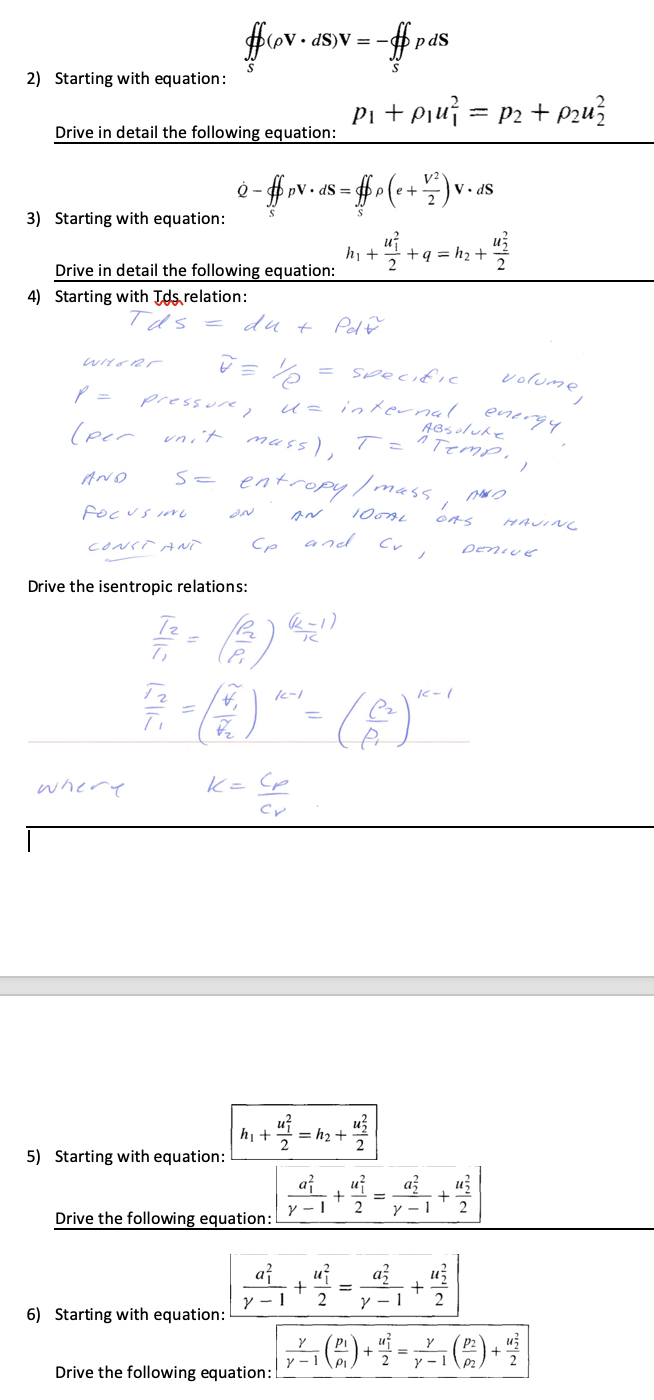 ∯(ρV • dS)V = −∯ p dS
S S
2) Starting with equation:
p₁ + ρ₁u₁² = p₂ + ρ₂u₂²
Drive in detail the following equation:
Q̇ − ∯ pV • dS = ∯ ρ (e + V²/2) V • dS
S S
3) Starting with equation:
h₁ + u₁²/2 + q = h₂ + u₂²/2
Drive in detail the following equation:
4) Starting with Tds relation:
Tds = du + Pdṽ
WHERE ṽ ≡ 1/ρ = specific volume,
P = pressure, u = internal energy
(per unit mass), T = ^ABSolute Temp.,
AND S = entropy/mass, AND
FOCUSING ON AN IDEAL GAS HAVING
CONSTANT Cp and Cv, DERIVE
Drive the isentropic relations:
T₂/T₁ = (P₂/P₁)^((k-1)/k)
T₂/T₁ = (ṽ₁/ṽ₂)^(k-1) = (ρ₂/ρ₁)^(k-1)
where K = Cp/Cv
5) Starting with equation: h₁ + u₁²/2 = h₂ + u₂²/2
Drive the following equation: a₁²/(γ − 1) + u₁²/2 = a₂²/(γ − 1) + u₂²/2
6) Starting with equation: a₁²/(γ − 1) + u₁²/2 = a₂²/(γ − 1) + u₂²/2
Drive the following equation: γ/(γ − 1) (p₁/ρ₁) + u₁²/2 = γ/(γ − 1) (p₂/ρ₂) + u₂²/2